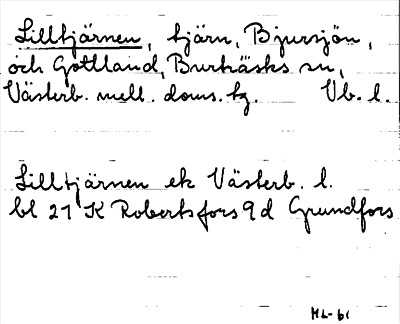 Lilltjärnen, tjärn, Bjursjön,
och Gottland, Burträsks sn,
Västerb. mell. doms. tg. Vb. l.
Lilltjärnen ek Västerb. l.
bl 21 K Robertsfors 9 d Grundfors
ML-61